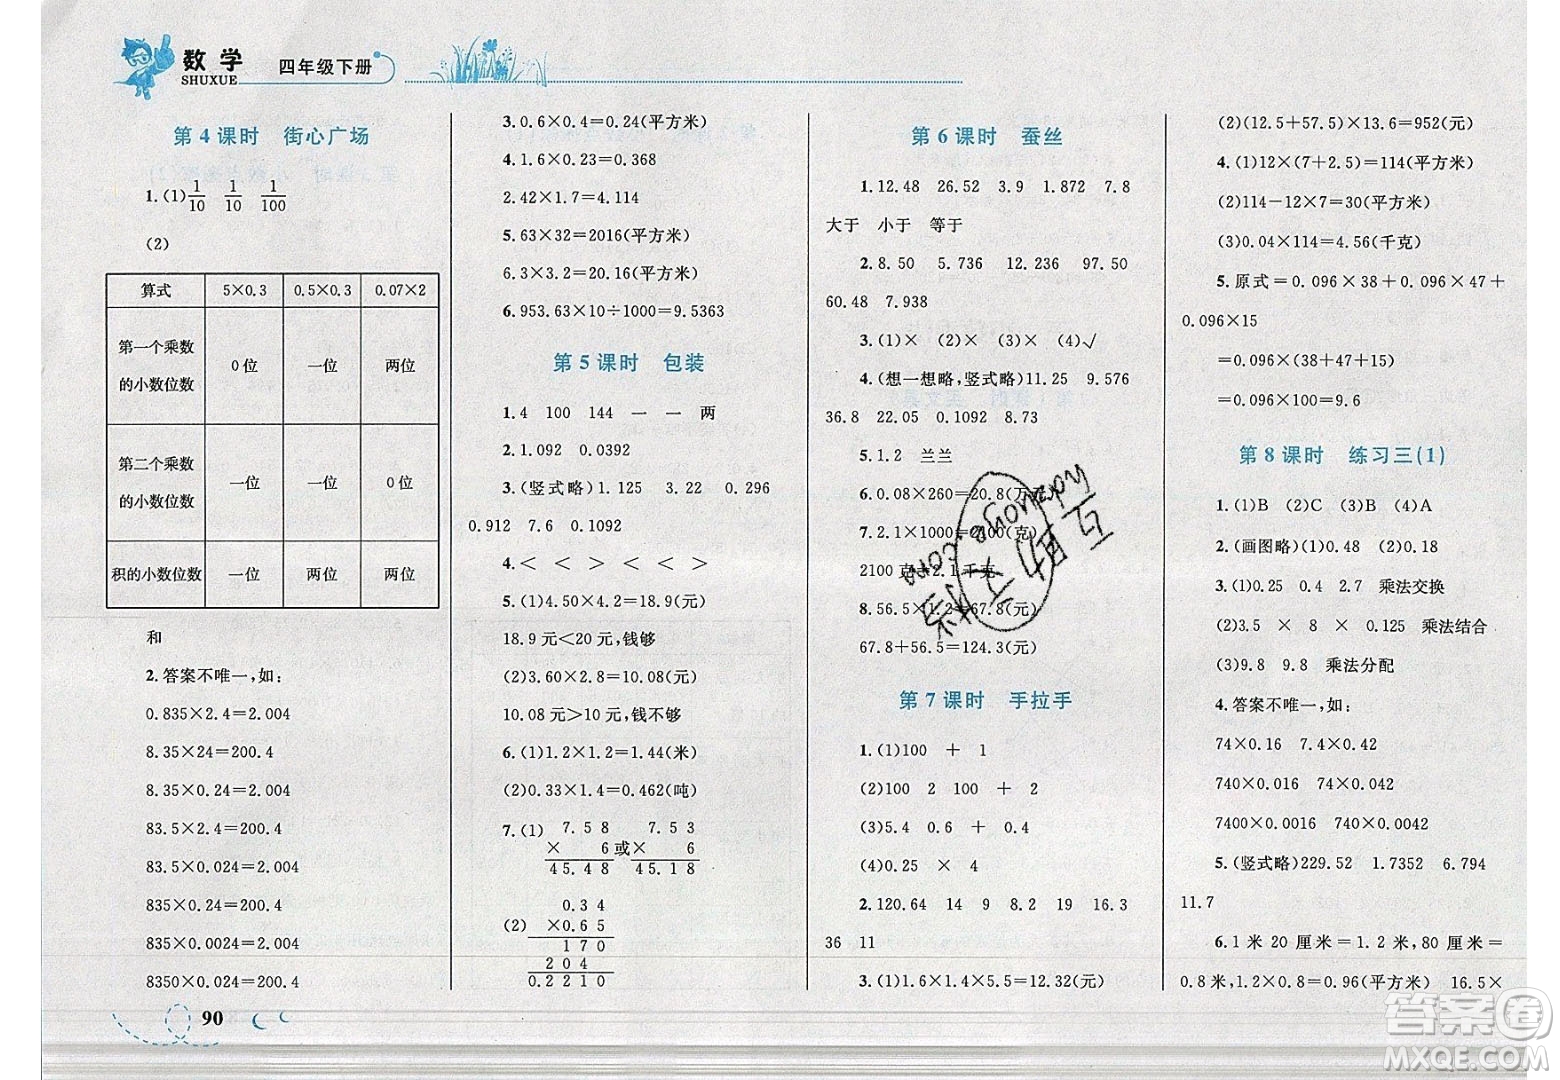 数学
SHUXUE
四年级下册
第 4 课时 街心广场
1.(1)1/10 1/10 1/100
(2)
算式 5×0.3 0.5×0.3 0.07×2
第一个乘数的小数位数 0位 一位 两位
第二个乘数的小数位数 一位 一位 0位
积的小数位数 一位 两位 两位
和
2.答案不唯一,如:
0.835×2.4=2.004
8.35×24=200.4
8.35×0.24=2.004
83.5×2.4=200.4
83.5×0.024=2.004
835×0.24=200.4
835×0.0024=2.004
8350×0.024=200.4
3.0.6×0.4=0.24(平方米)
4.1.6×0.23=0.368
2.42×1.7=4.114
5.63×32=2016(平方米)
6.3×3.2=20.16(平方米)
6.953.63×10÷1000=9.5363
第 5 课时 包装
1.4 100 144 一 一 两
2.1.092 0.0392
3.(竖式略)1.125 3.22 0.296
0.912 7.6 0.1092
4.< < < < < <
5.(1)4.50×4.2=18.9(元)
18.9元<20元,钱够
(2)3.60×2.8=10.08(元)
10.08元>10元,钱不够
6.(1)1.2×1.2=1.44(米)
(2)0.33×1.4=0.462(吨)
7.(1) 7.58 7.53
× 6 或 × 6
45.48 45.18
0.34
(2) ×0.65
170
204
0.2210
第 6 课时 蚕丝
1.12.48 26.52 3.9 1.872 7.8
大于 小于 等于
2.8.50 5.736 12.236 97.50
60.48 7.938
3.(1)× (2)× (3)× (4)√
4.(想一想略,竖式略)11.25 9.576
36.8 22.05 0.1092 8.73
5.1.2 兰兰
6.0.08×260=20.8(万元)
7.2.1×1000=2100(克)
2100克=2.1千克
8.56.5×1.2=67.8(元)
67.8+56.5=124.3(元)
第 7 课时 手拉手
1.(1)100 + 1
(2)100 2 100 + 2
(3)5.4 0.6 + 0.4
(4)0.25 × 4
2.120.64 14 9 8.2 19 16.3
36 11
3.(1)1.6×1.4×5.5=12.32(元)
(2)(12.5+57.5)×13.6=952(元)
4.(1)12×(7+2.5)=114(平方米)
(2)114-12×7=30(平方米)
(3)0.04×114=4.56(千克)
5.原式=0.096×38+0.096×47+
0.096×15
=0.096×(38+47+15)
=0.096×100=9.6
第 8 课时 练习三(1)
1.(1)B (2)C (3)B (4)A
2.(画图略)(1)0.48 (2)0.18
3.(1)0.25 0.4 2.7 乘法交换
(2)3.5 × 8 × 0.125 乘法结合
(3)9.8 9.8 乘法分配
4.答案不唯一,如:
74×0.16 7.4×0.42
740×0.016 74×0.042
7400×0.0016 740×0.0042
5.(竖式略)229.52 1.7352 6.794
11.7
6.1米20厘米=1.2米,80厘米=
0.8米,1.2×0.8=0.96(平方米) 16.5×
90
答案圈
MXQE.COM